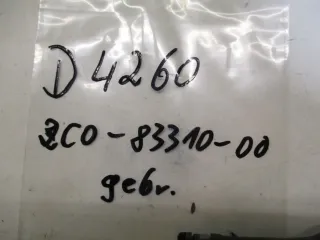 D 4260
2CO-83310-00
gebr.